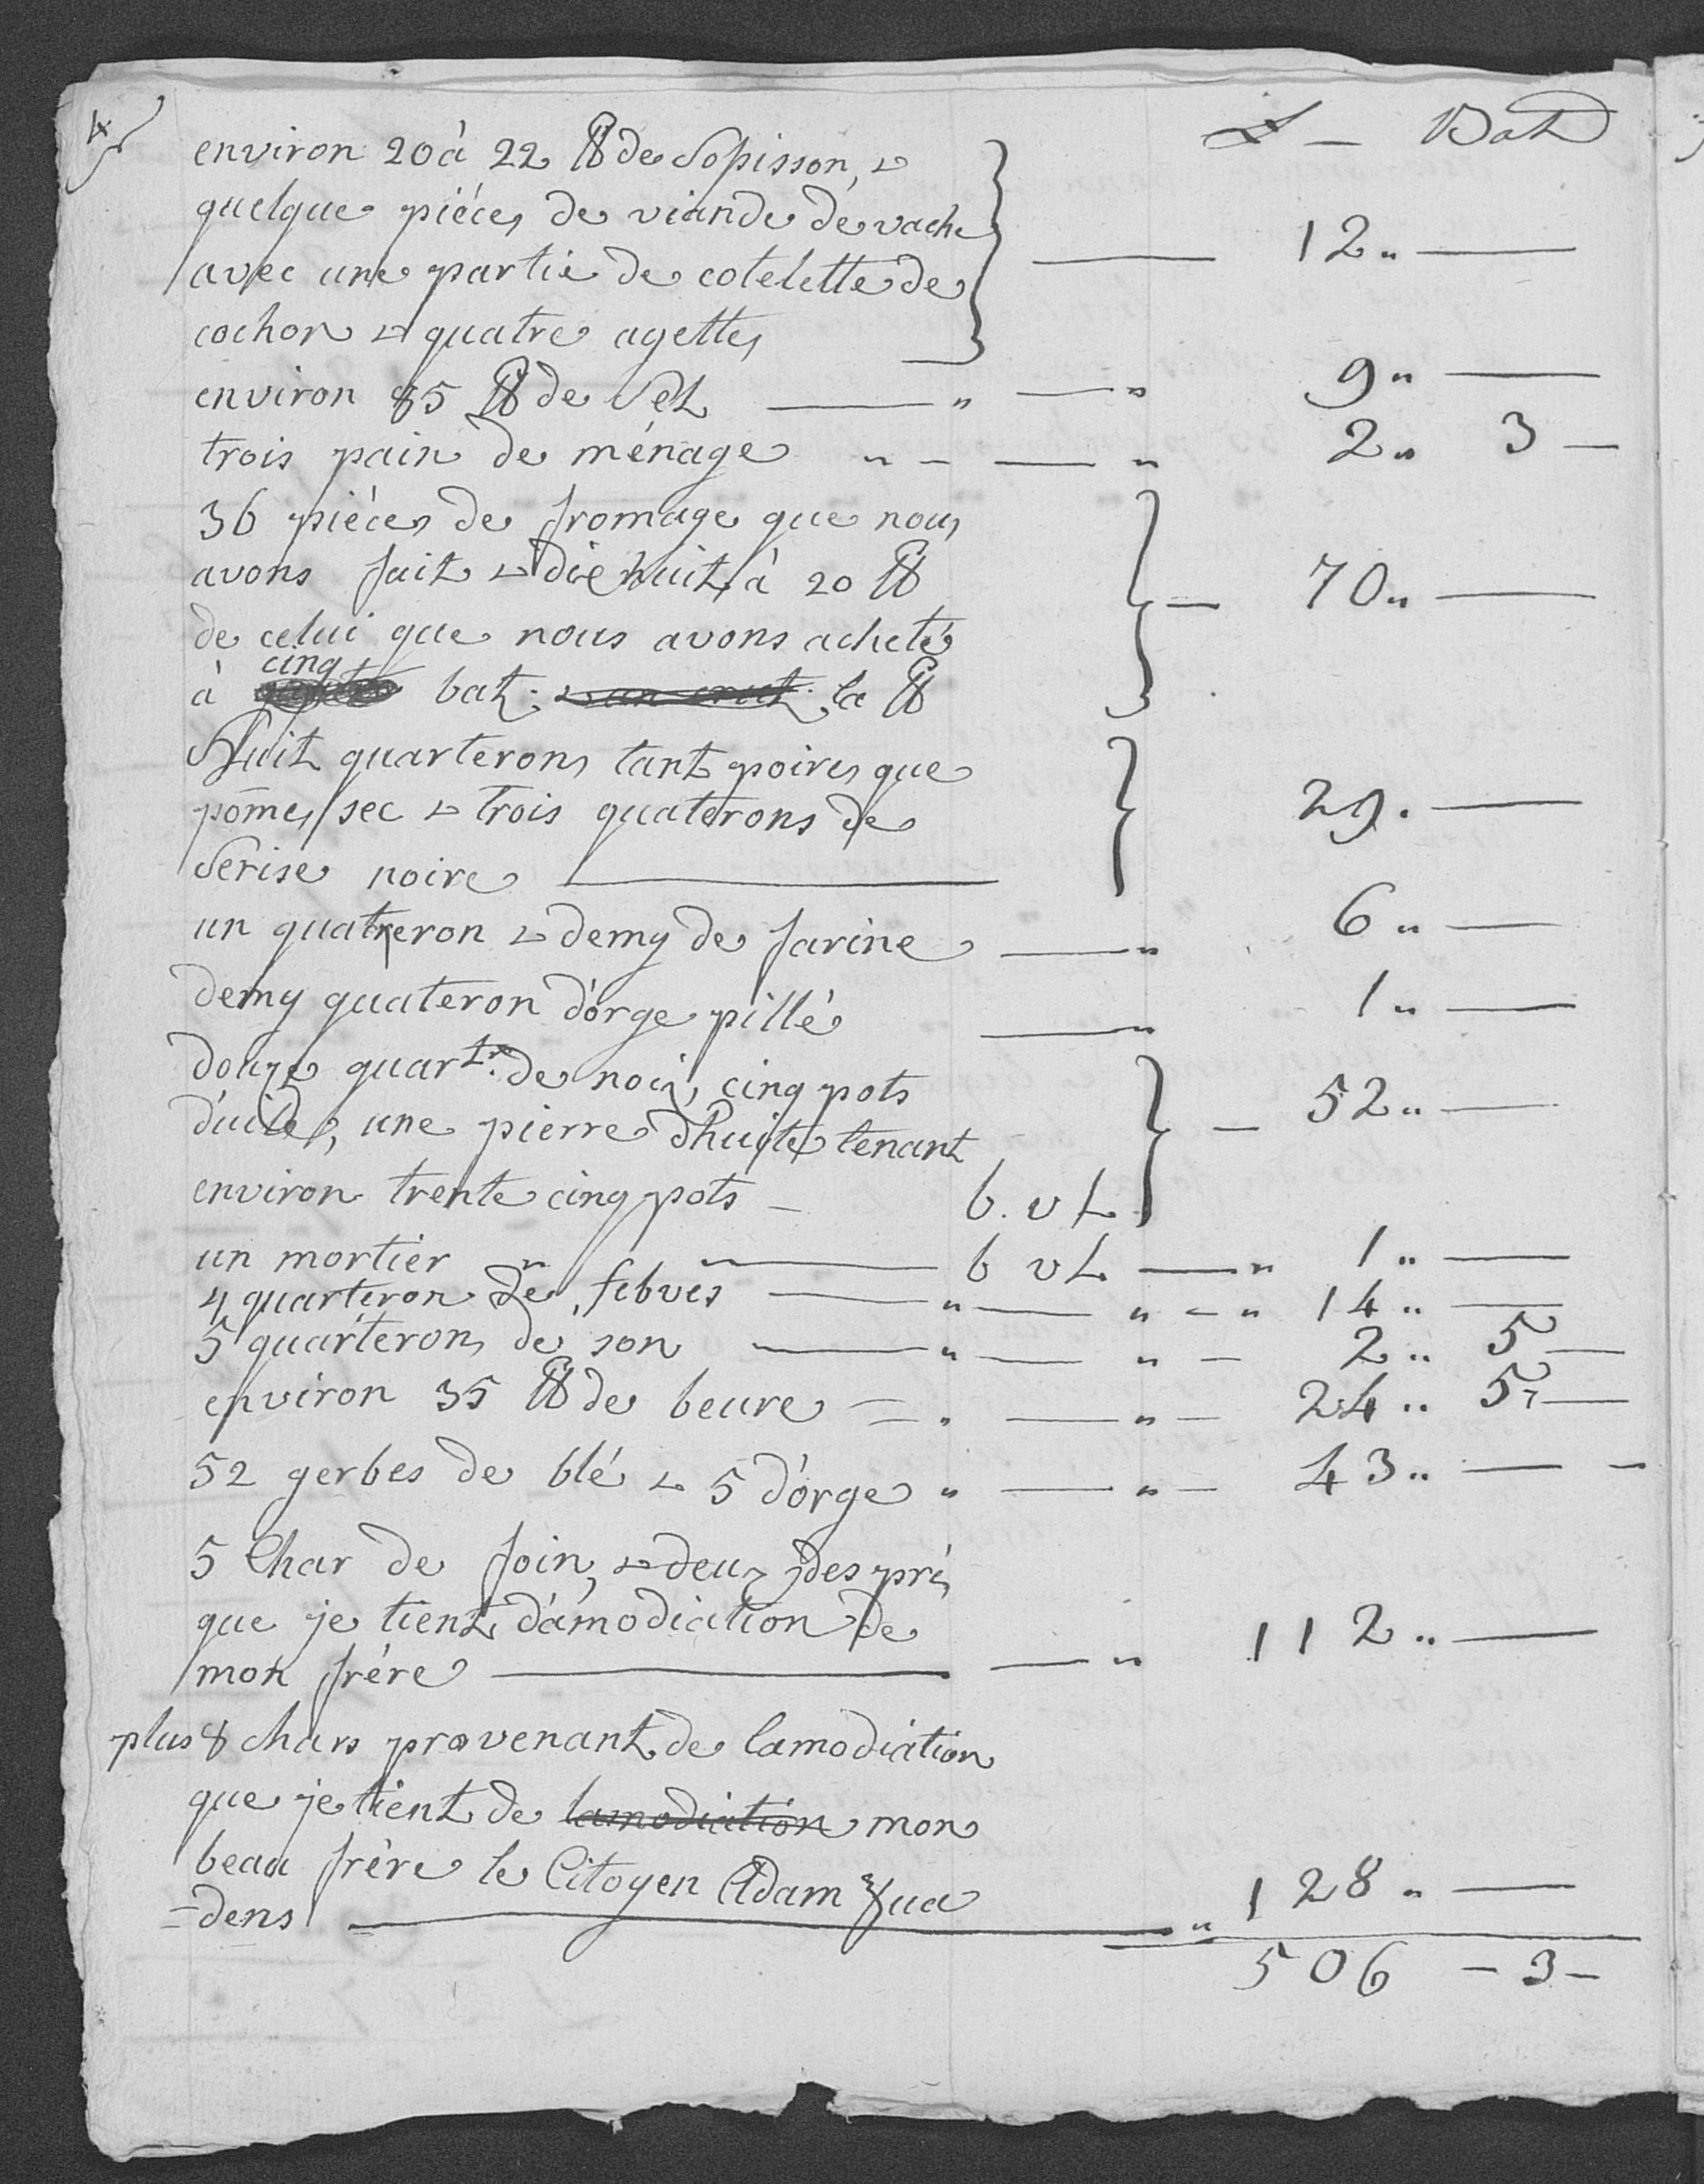 4
£ — Batz
environ 20 à 22 ℔ de Sosisson, &
quelque piéces de viande de vache
avec une partie de cotelette de — 12 „ —
cochon & quatre agettes
environ 85 ℔ de Sel — „ — „ 9 „ —
trois pain de ménage „ - — „ 2 „ 3 —
36 piéces de fromage que nous
avons fait & die huit à 20 ℔ — 70 „ —
de celui que nous avons acheté
à cinq batz: la ℔
Huit quarterons tant poires que
pōmes sec & trois quaterons de 29. —
Serise noire —
un quatreron & demy de farine — „ 6 „ —
demy quateron d'orge pillé — „ 1 „ —
douze quartr. de noix, cinq pots — 52 „ —
d'uile, une pierre d'huile tenant
environ trente cinq pots — b. v L
un mortier „ — b v L — „ 1 „ —
4 quarteron de febves — „ — „ - „ 14 „ —
5 quarterons de son — „ — „ - 2 „ 5 —
environ 35 ℔ de beure = „ — „ - 24 „ 5 —
52 gerbes de blé & 5 d'orge „ — „ - 43 „ — -
5 Char de foin, & deux des prés
que je tient d'amodiation de 112 „ —
mon frére — — „
plus 8 chars provenant de lamodiation
que je tient de lamodiation mon
beau frère le Citoyen Adam Jua 128 „ —
=dens — „
506 - 3 -